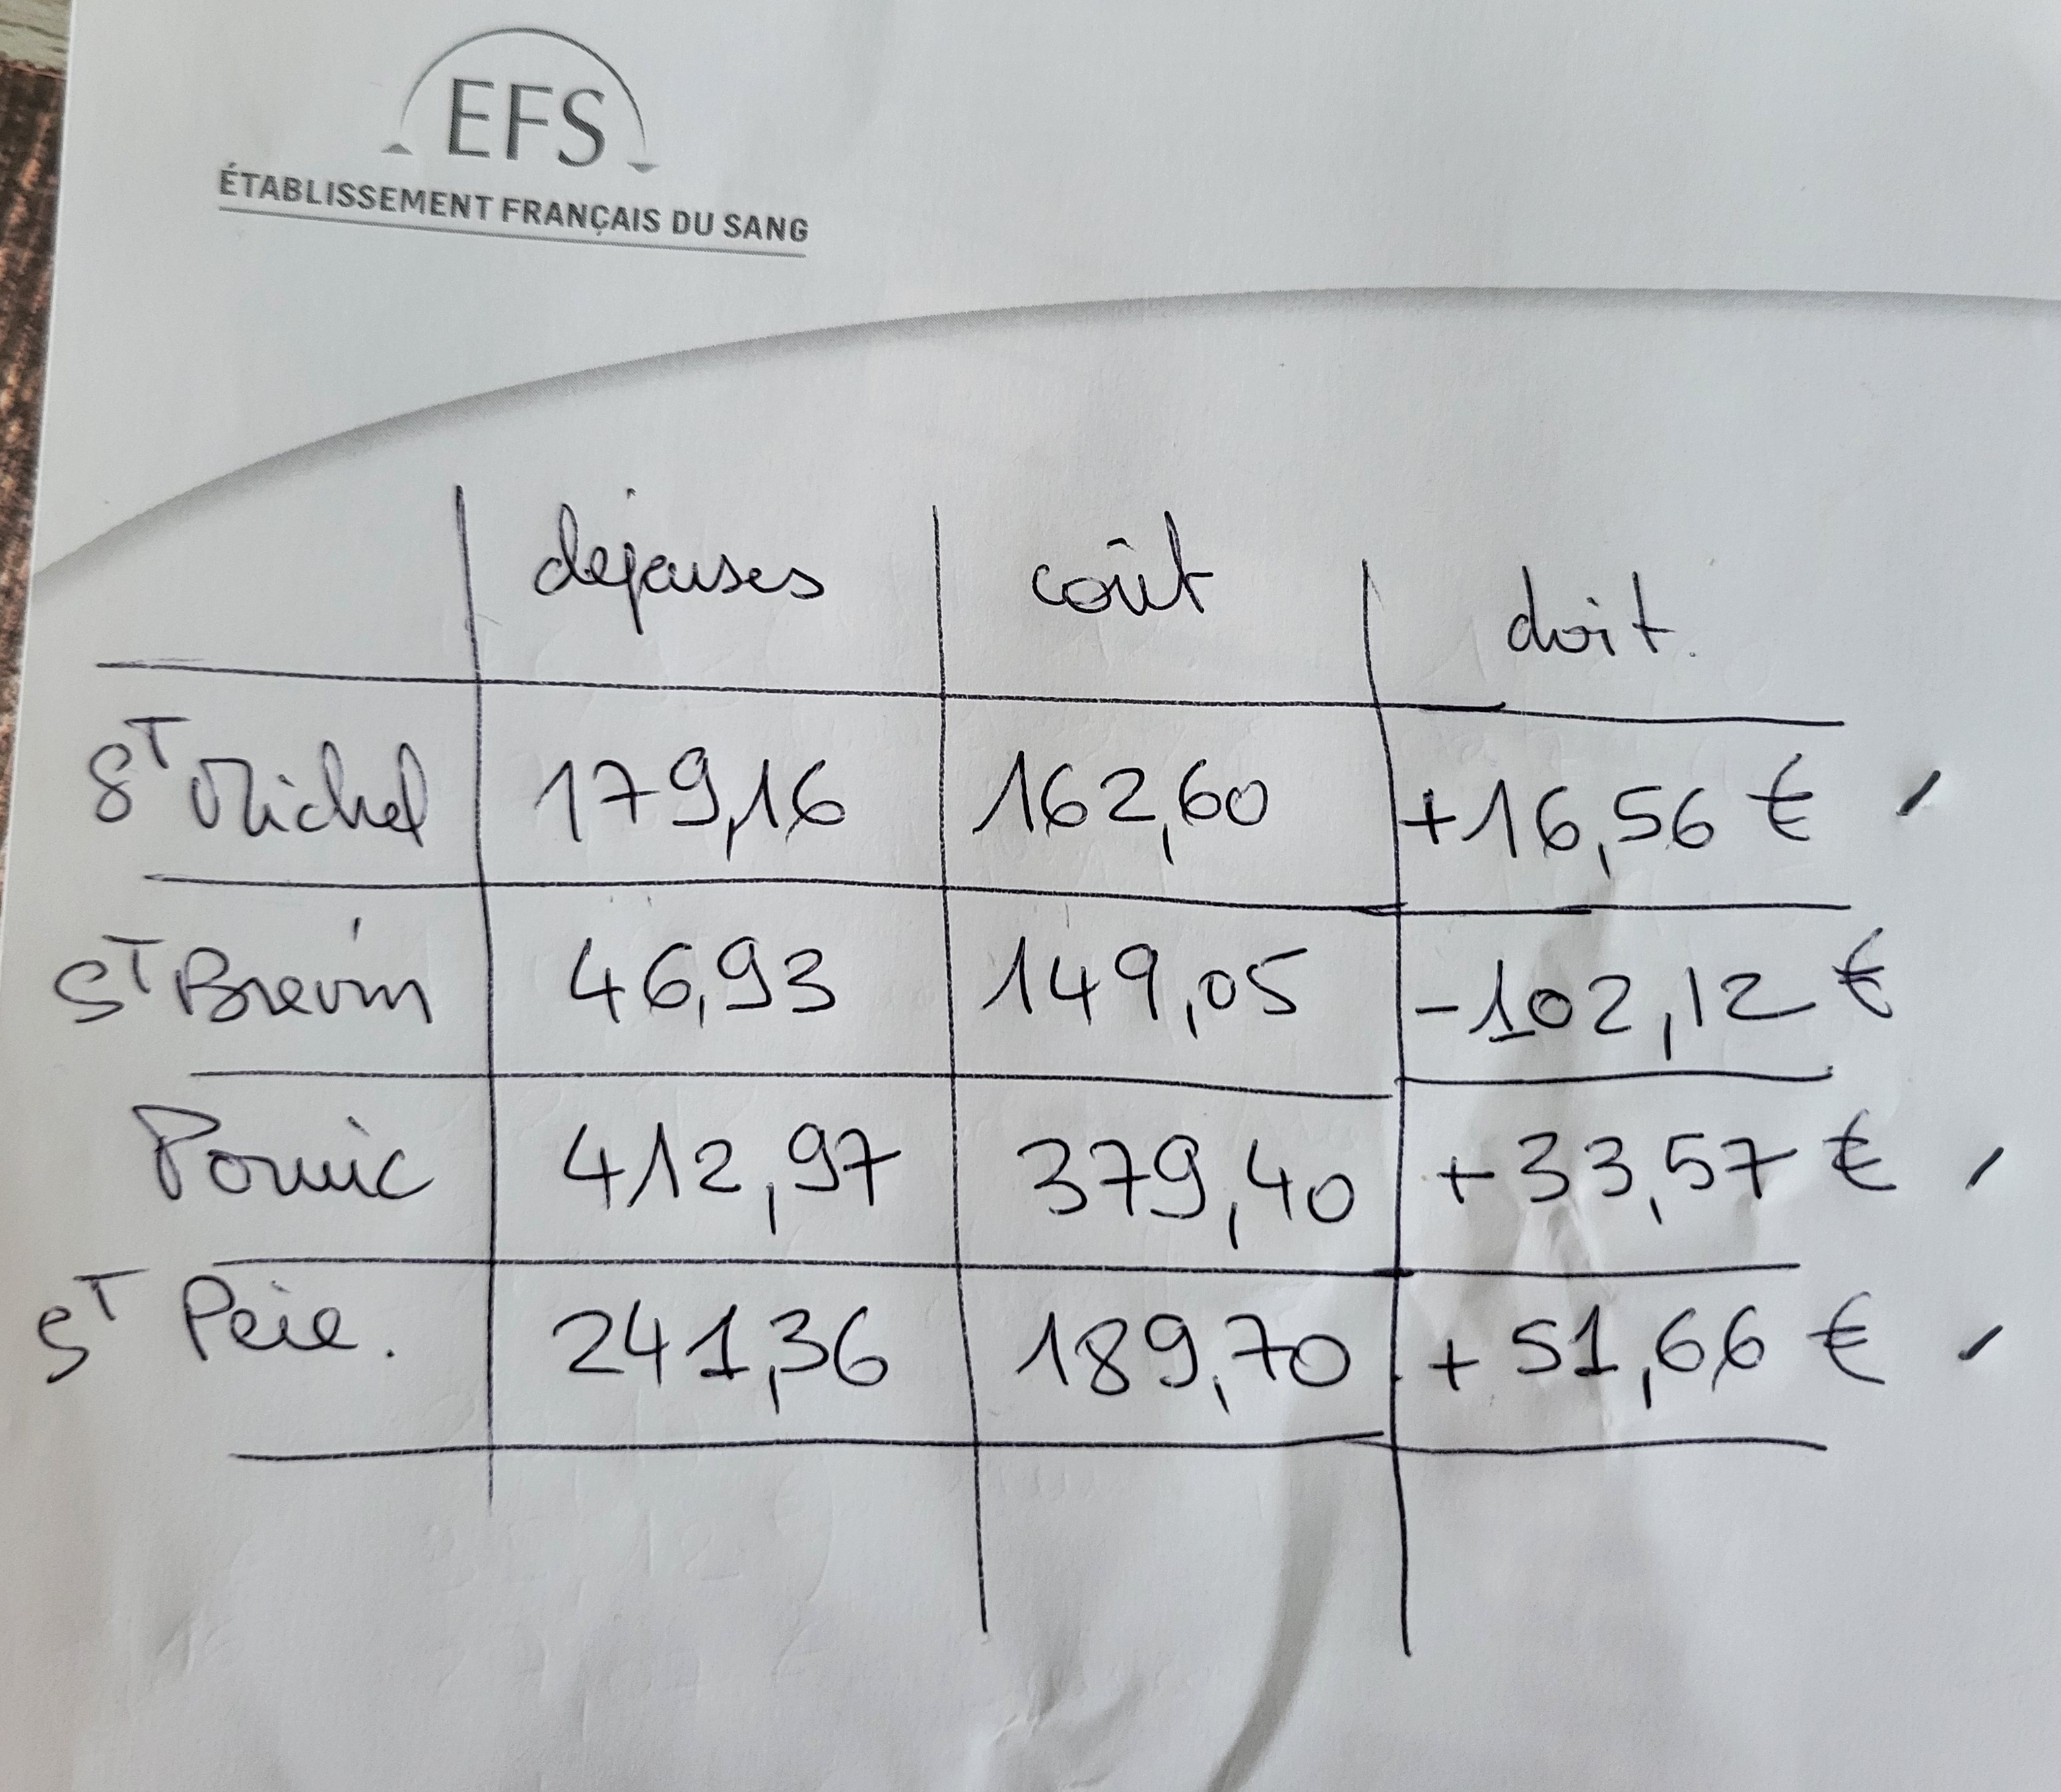 EFS
ÉTABLISSEMENT FRANÇAIS DU SANG
dépenses coût doit.
ST Michel 179,16 162,60 +16,56 €
ST Brevin 46,93 149,05 -102,12 €
Pornic 412,97 379,40 +33,57 €
ST Père. 241,36 189,70 + 51,66 €